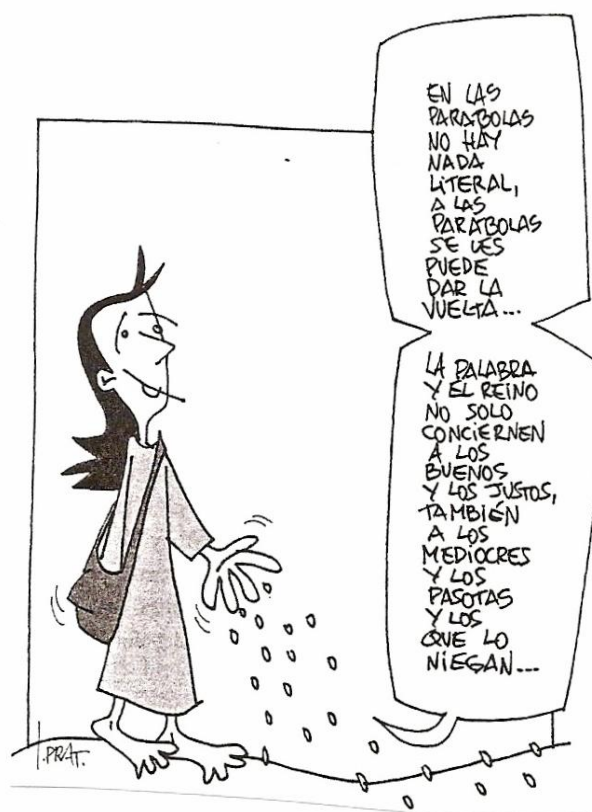 EN LAS
PARÁBOLAS
NO HAY
NADA
LITERAL,
A LAS
PARÁBOLAS
SE LES
PUEDE
DAR LA
VUELTA...
LA PALABRA
Y EL REINO
NO SOLO
CONCIERNEN
A LOS
BUENOS
Y LOS JUSTOS,
TAMBIÉN
A LOS
MEDIOCRES
Y LOS
PASOTAS
Y LOS
QUE LO
NIEGAN...
I.PRAT.